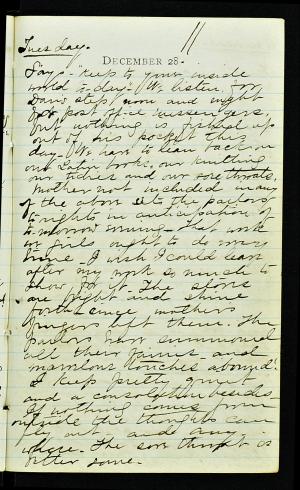 Tuesday. 11
DECEMBER 28.
Says "keep to your inside
world to-day." We listen for
Dan's step noon and night
for post office messengers,
but nothing is fished up
out of his pocket this
day. We have to lean back on
our Latin books, our knitting
our tidies and our sore throats.
Mother not included in any
of the above sets the parlors
to rights in anticipation of
to-morrow evening. That work
we girls ought to do every
time. I wish I could leave
after my work so much to
show for it. The stoves
are bright and shine
forth since mothers
fingers left them. The
parlors have summoned
all their fairies and
marvelous touches abound.
I keep pretty quiet
and a consolation besides.
If nothing comes from
outside the thoughts can
fly out and
where. The sore throat is
better some.